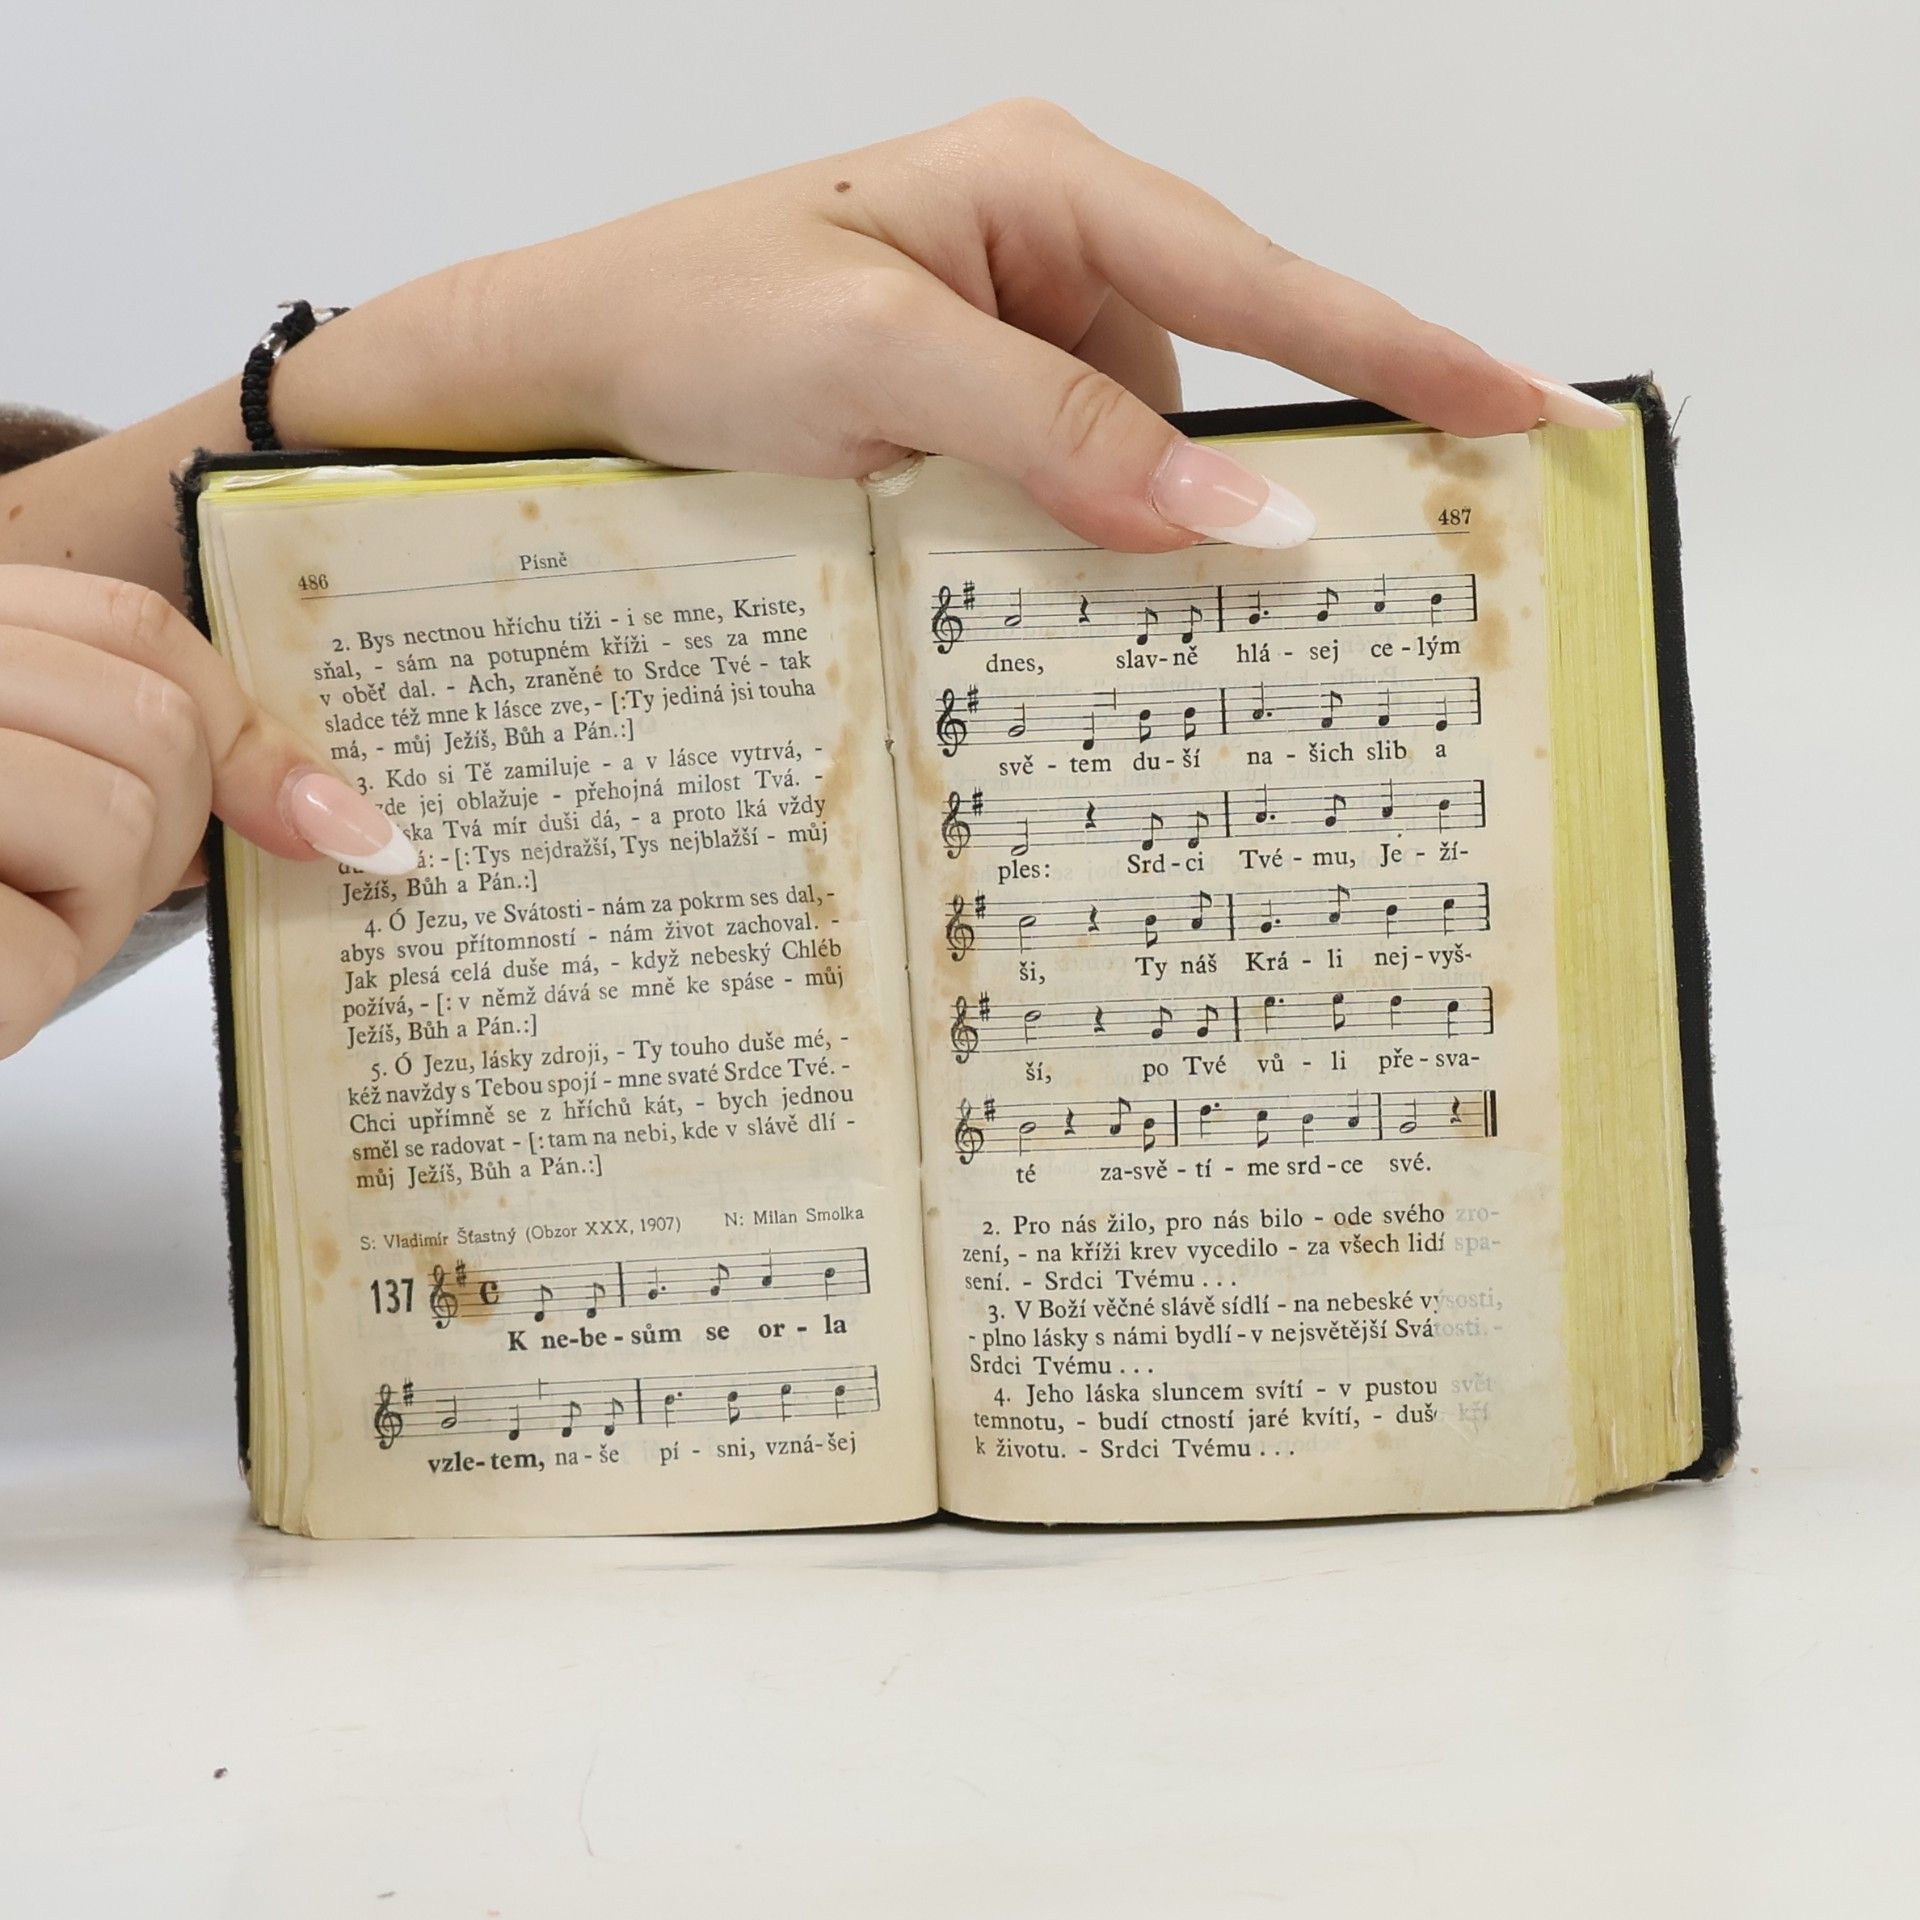 486
Písně
2. Bys nectnou hříchu tíži - i se mne, Kriste,
sňal, - sám na potupném kříži - ses za mne
v oběť dal. - Ach, zraněné to Srdce Tvé - tak
sladce též mne k lásce zve, - [:Ty jediná jsi touha
má, - můj Ježíš, Bůh a Pán.:]
3. Kdo si Tě zamiluje - a v lásce vytrvá, -
jej oblažuje - přehojná milost Tvá. -
Tvá mír duši dá, - a proto lká vždy
- [:Tys nejdražší, Tys nejblažší - můj
Ježíš, Bůh a Pán.:]
4. Ó Jezu, ve Svátosti - nám za pokrm ses dal, -
abys svou přítomností - nám život zachoval. -
Jak plesá celá duše má, - když nebeský Chléb
požívá, - [: v němž dává se mně ke spáse - můj
Ježíš, Bůh a Pán.:]
5. Ó Jezu, lásky zdroji, - Ty touho duše mé, -
kéž navždy s Tebou spojí - mne svaté Srdce Tvé. -
Chci upřímně se z hříchů kát, - bych jednou
směl se radovat - [:tam na nebi, kde v slávě dlí -
můj Ježíš, Bůh a Pán.:]
S: Vladimír Šťastný (Obzor XXX, 1907) N: Milan Smolka
137
K ne-be - sům se or - la
vzle-tem, na - še pí - sni, vzná-šej
487
dnes, slav-ně hlá - sej ce - lým
svě - tem du - ší na - šich slib a
ples: Srd - ci Tvé - mu, Je - ží-
ši, Ty náš Krá - li nej - vyš-
ší, po Tvé vů - li pře - sva-
té za-svě - tí - me srd - ce své.
2. Pro nás žilo, pro nás bilo - ode svého zro-
zení, - na kříži krev vycedilo - za všech lidí spa-
sení. - Srdci Tvému . . .
3. V Boží věčné slávě sídlí - na nebeské výsosti,
- plno lásky s námi bydlí - v nejsvětější Svátosti. -
Srdci Tvému . . .
4. Jeho láska sluncem svítí - v pustou svět
temnotu, - budí ctností jaré kvítí, -
k životu. - Srdci Tvému . . .